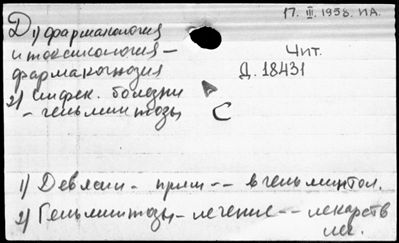 17. III. 1958. ПА.
Д 1) фармакология
и токсикология –
фармакогнозия
2) инфек. болезни
– гельминтозы
Чит.
Д. 18431
С
1) Девясил - прим -- в гельминтол.
2) Гельминтозы - лечение -- лекарств
лес.